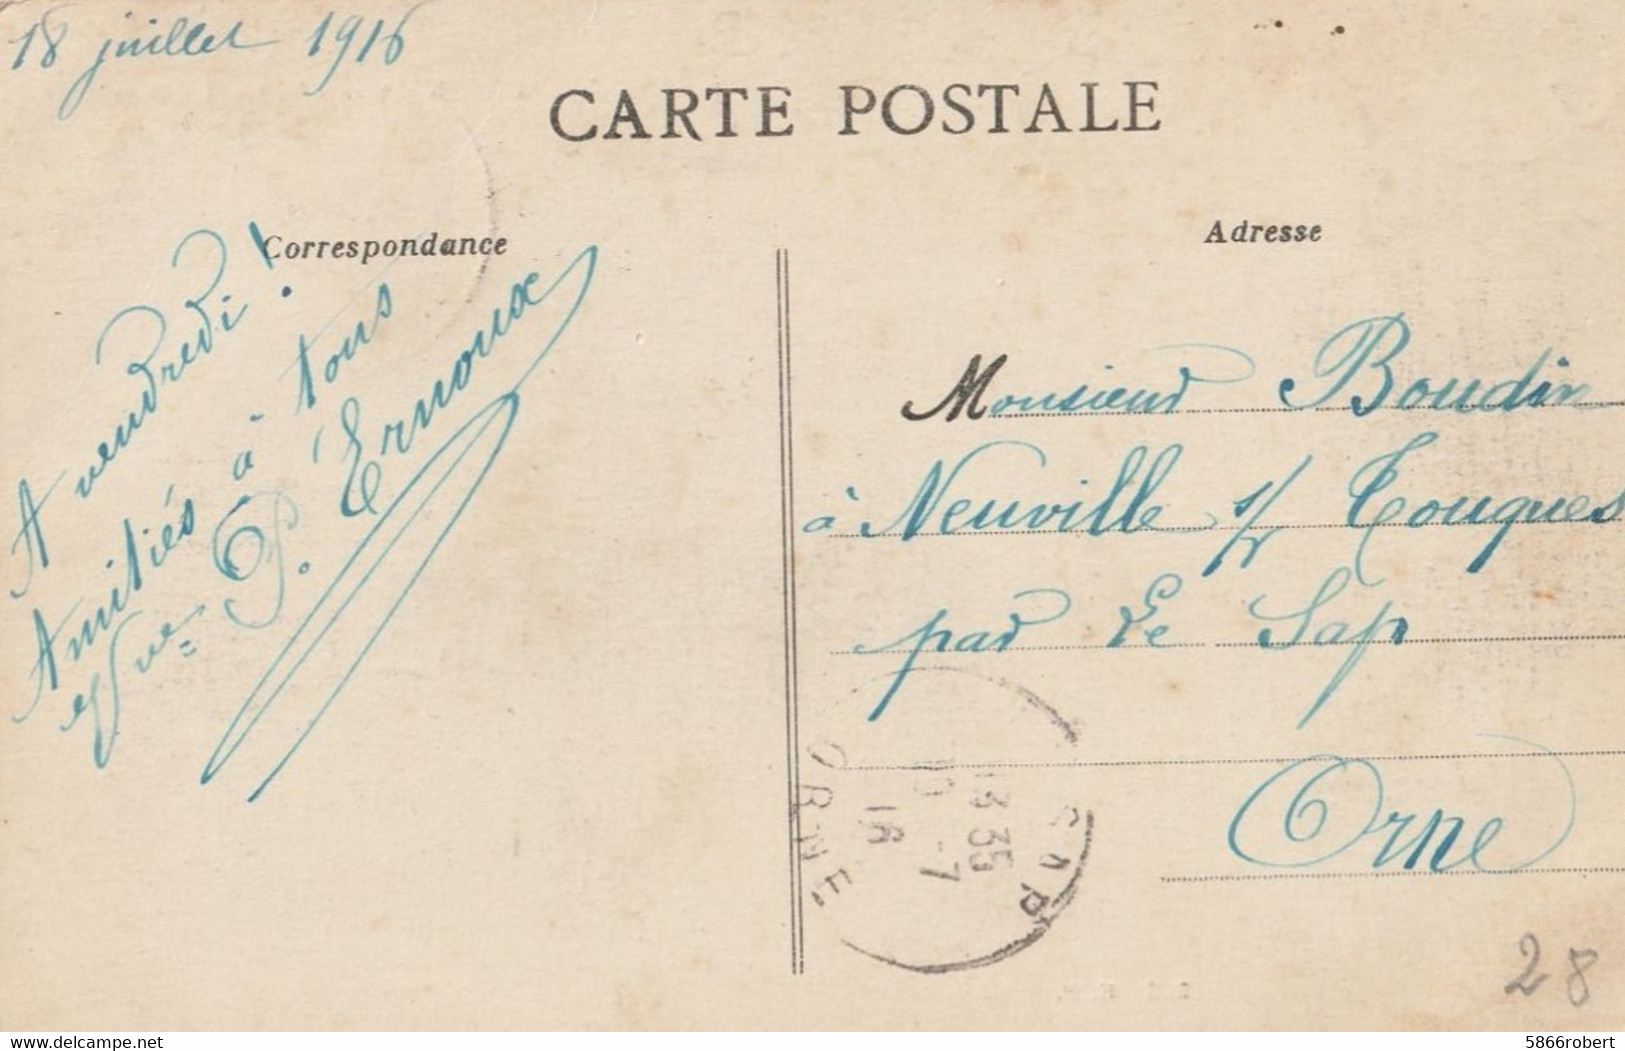 18 juillet 1916
CARTE POSTALE
Correspondance
Adresse
A vendredi !
Amitiés à tous
P. Ernoux
Monsieur Boudin
à Neuville s/ Touques
par Le Sap
Orne
ORNE
13 35
-7
16
28
delcampe.net
5866robert